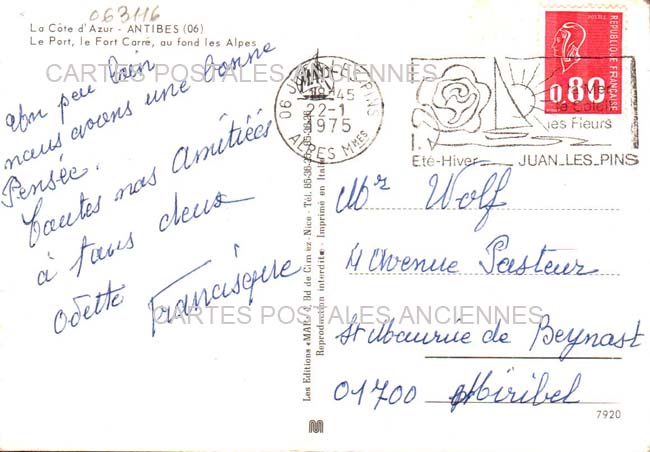 063116
La Côte d'Azur - ANTIBES (06)
Le Port, le Fort Carré, au fond les Alpes
CARTES POSTALES ANCIENNES
Un peu loin
nous avons une bonne
Pensée.
Toutes nos Amitiées
à tous deux
Odette Francisque
06 JUAN-LES-PINS
18H45
22-1
1975
ALPES Mmes
la Mer
le Soleil
les Fleurs
Eté-Hiver JUAN_LES_PINS
POSTES
REPUBLIQUE FRANÇAISE
0,80
Les Editions «MAR», Bd de Cimiez - Nice - Tél.
Reproduction interdite - Imprimé en Italie
Mr Wolf
4 Avenue Pasteur
CARTES POSTALES ANCIENNES
St Maurice de Beynost
01700 Miribel
M
7920